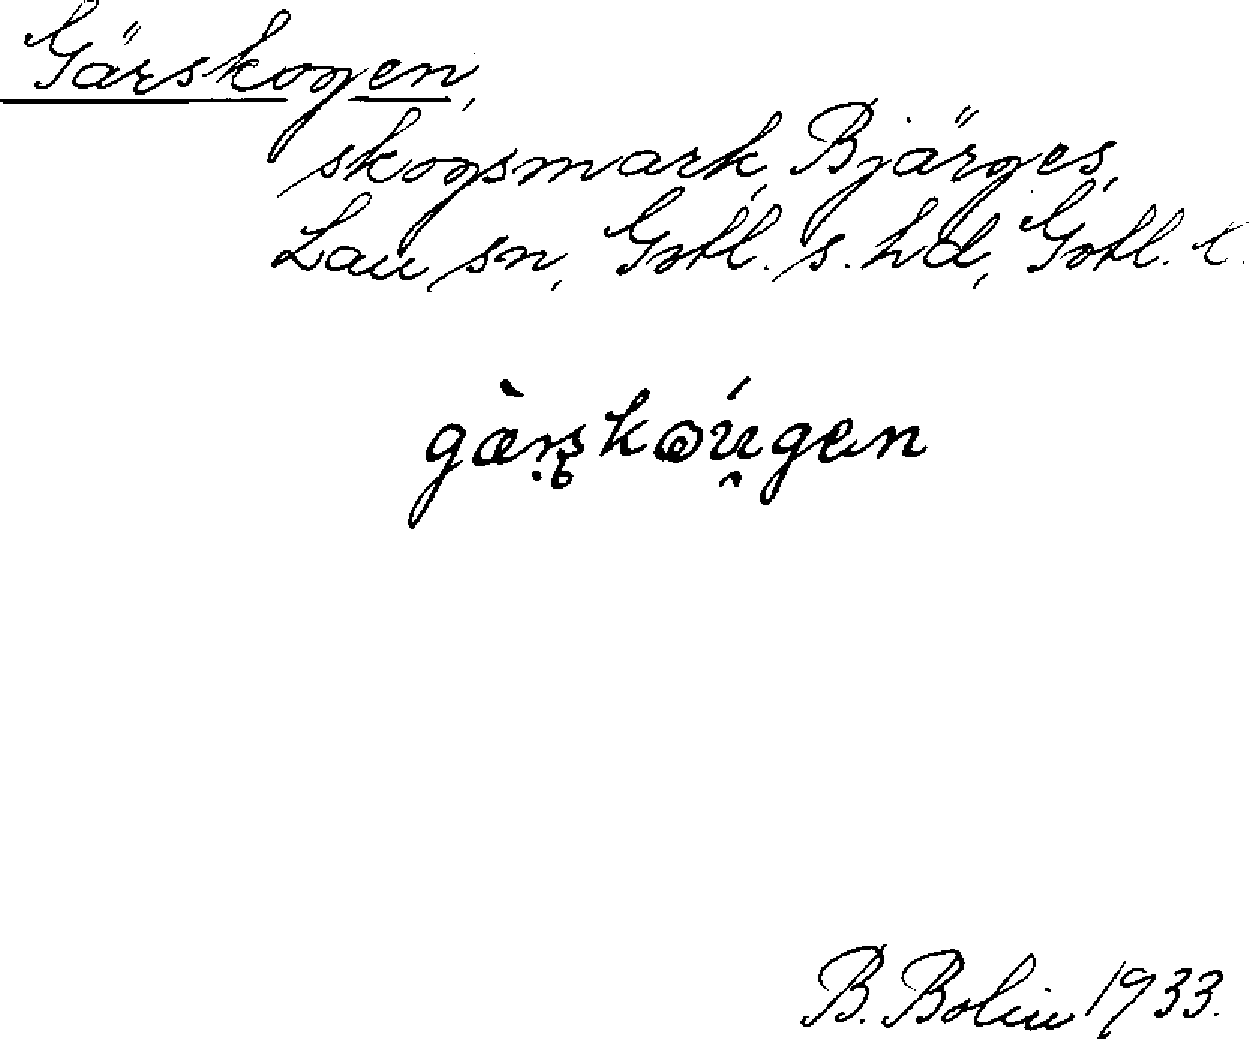 Gärskogen,
skogsmark, Bjärges,
Lau sn, Gotl. s. hd, Gotl. l.
gæ̀rskoúgen
B. Bolin 1933.